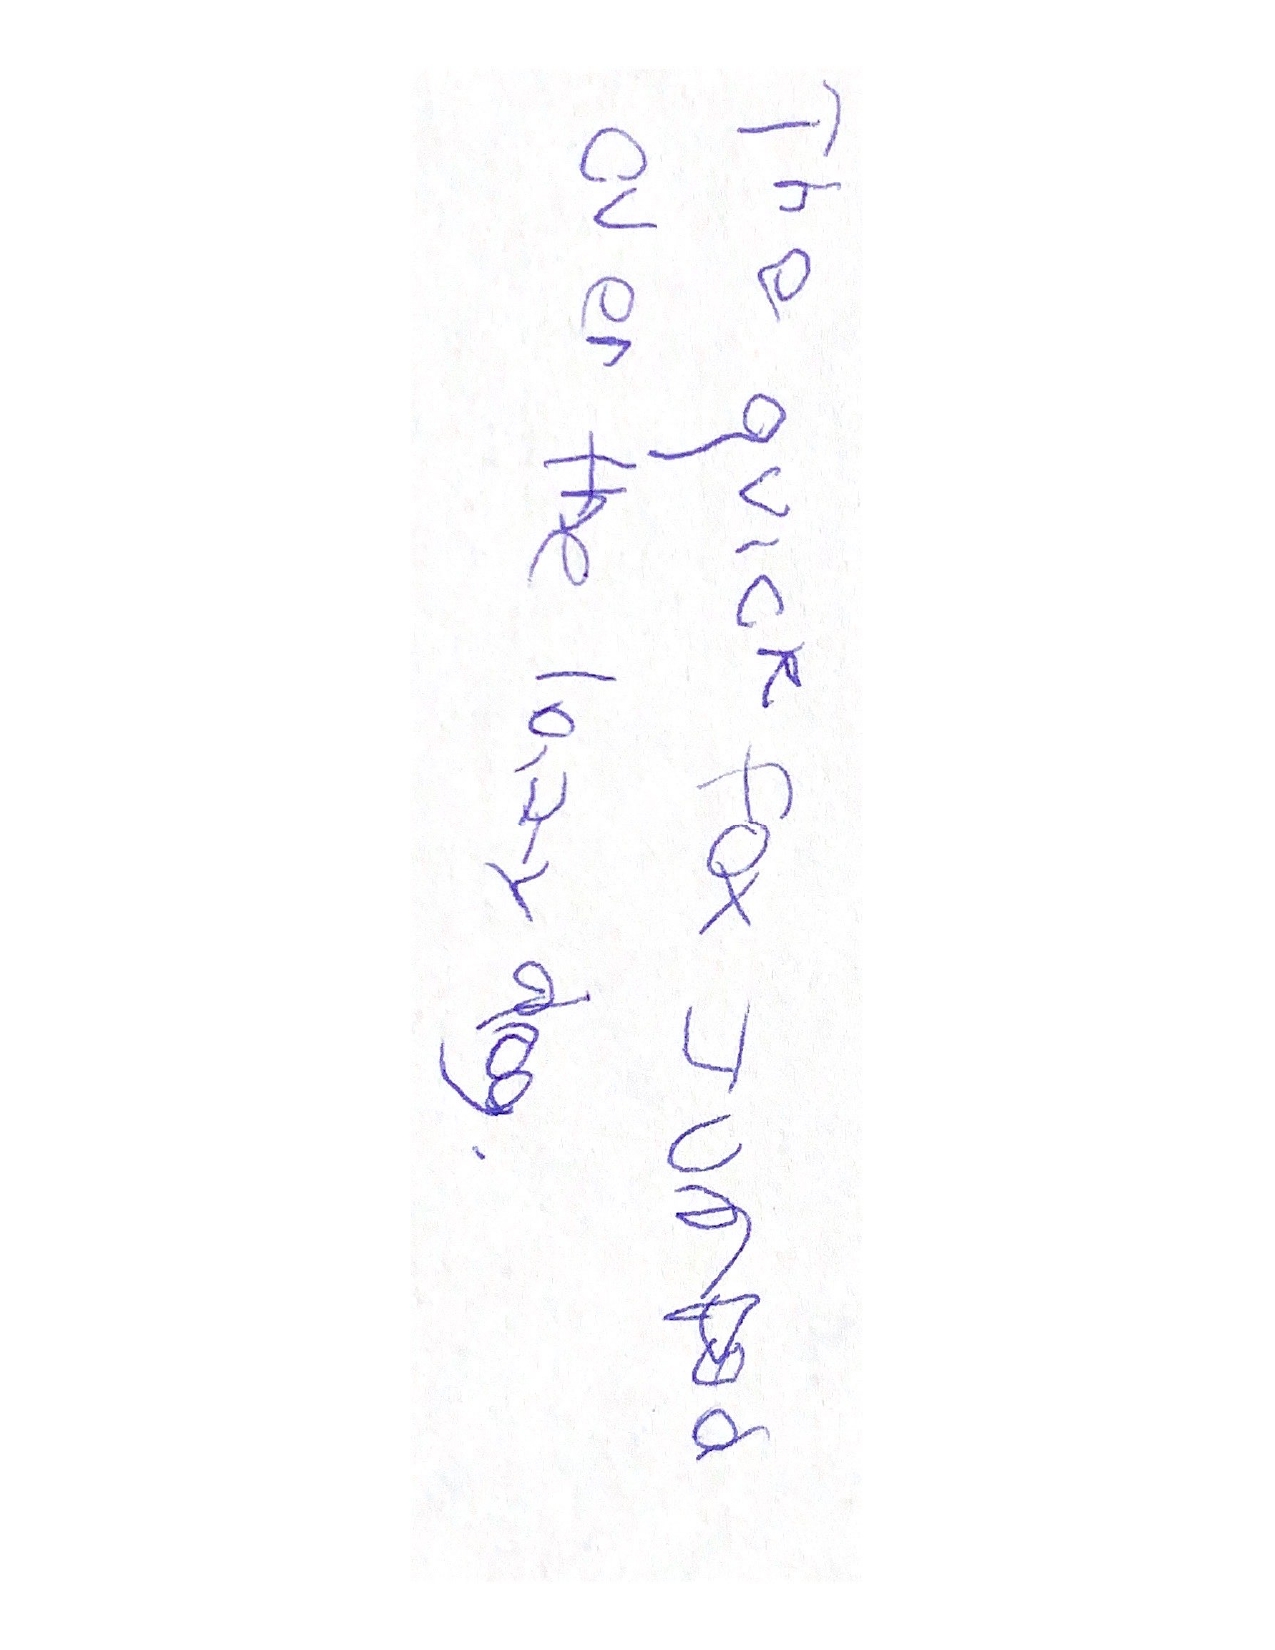 The quick fox Jumped
over the lazy dog.